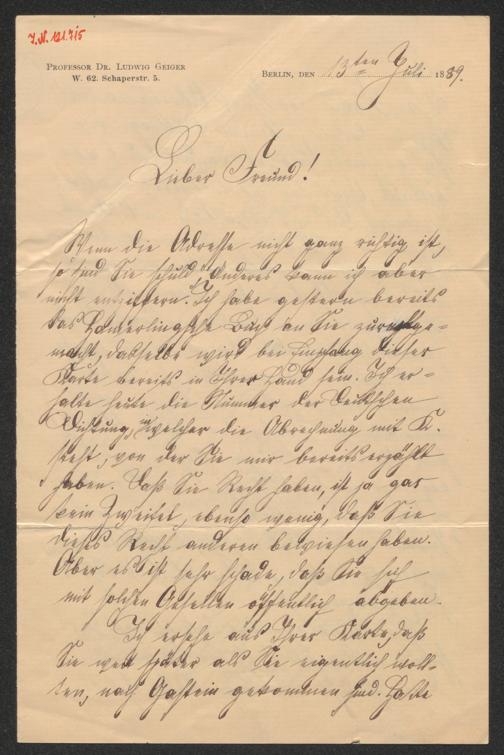 J.N. 121.715
PROFESSOR DR. LUDWIG GEIGER
W. 62. Schaperstr. 5.
BERLIN, DEN 13ten Juli 1889.
Lieber Freund!
Wenn die Adresse nicht ganz richtig ist,
so sind Sie schuld; Anderes kann ich aber
nicht entziffern. Ich habe gestern bereits
das Buch an Sie zurückge-
macht, dasselbe wird bei Empfang dieser
Karte bereits in Ihrer Hand sein. Ich er-
halte heute die Nummer der Deutschen
Dichtung, in welcher die Abrechnung mit K.
steht, von der Sie mir bereits erzählt
haben. Daß Sie Recht haben, ist ja gar
kein Zweifel, ebenso wenig, daß Sie
dieses Recht anderen bewiesen haben.
Aber es ist sehr schade, daß Sie sich
mit solchen Gesellen öffentlich abgeben.
Ich ersehe aus Ihrer Karte, daß
Sie weit später als Sie eigentlich woll-
ten, nach Gastein gekommen sind. Hatte